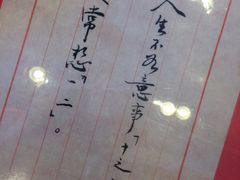 人生不如意事「十之
常想「一二」。